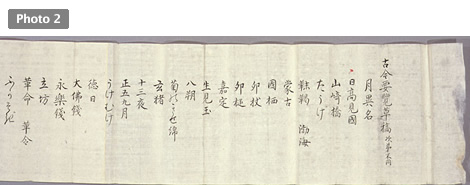 Photo 2
古今要覧草稿
月異名
日高見國
山崎橋
たうけ
靺鞨 渤海
蒙古
國栖
卯杖
卯槌
嘉定
生見玉
八朔
菊のきせ綿
玄猪
十三夜
正五九月
うけむけ
徳日
大佛錢
永樂錢
立坊
革命 革令